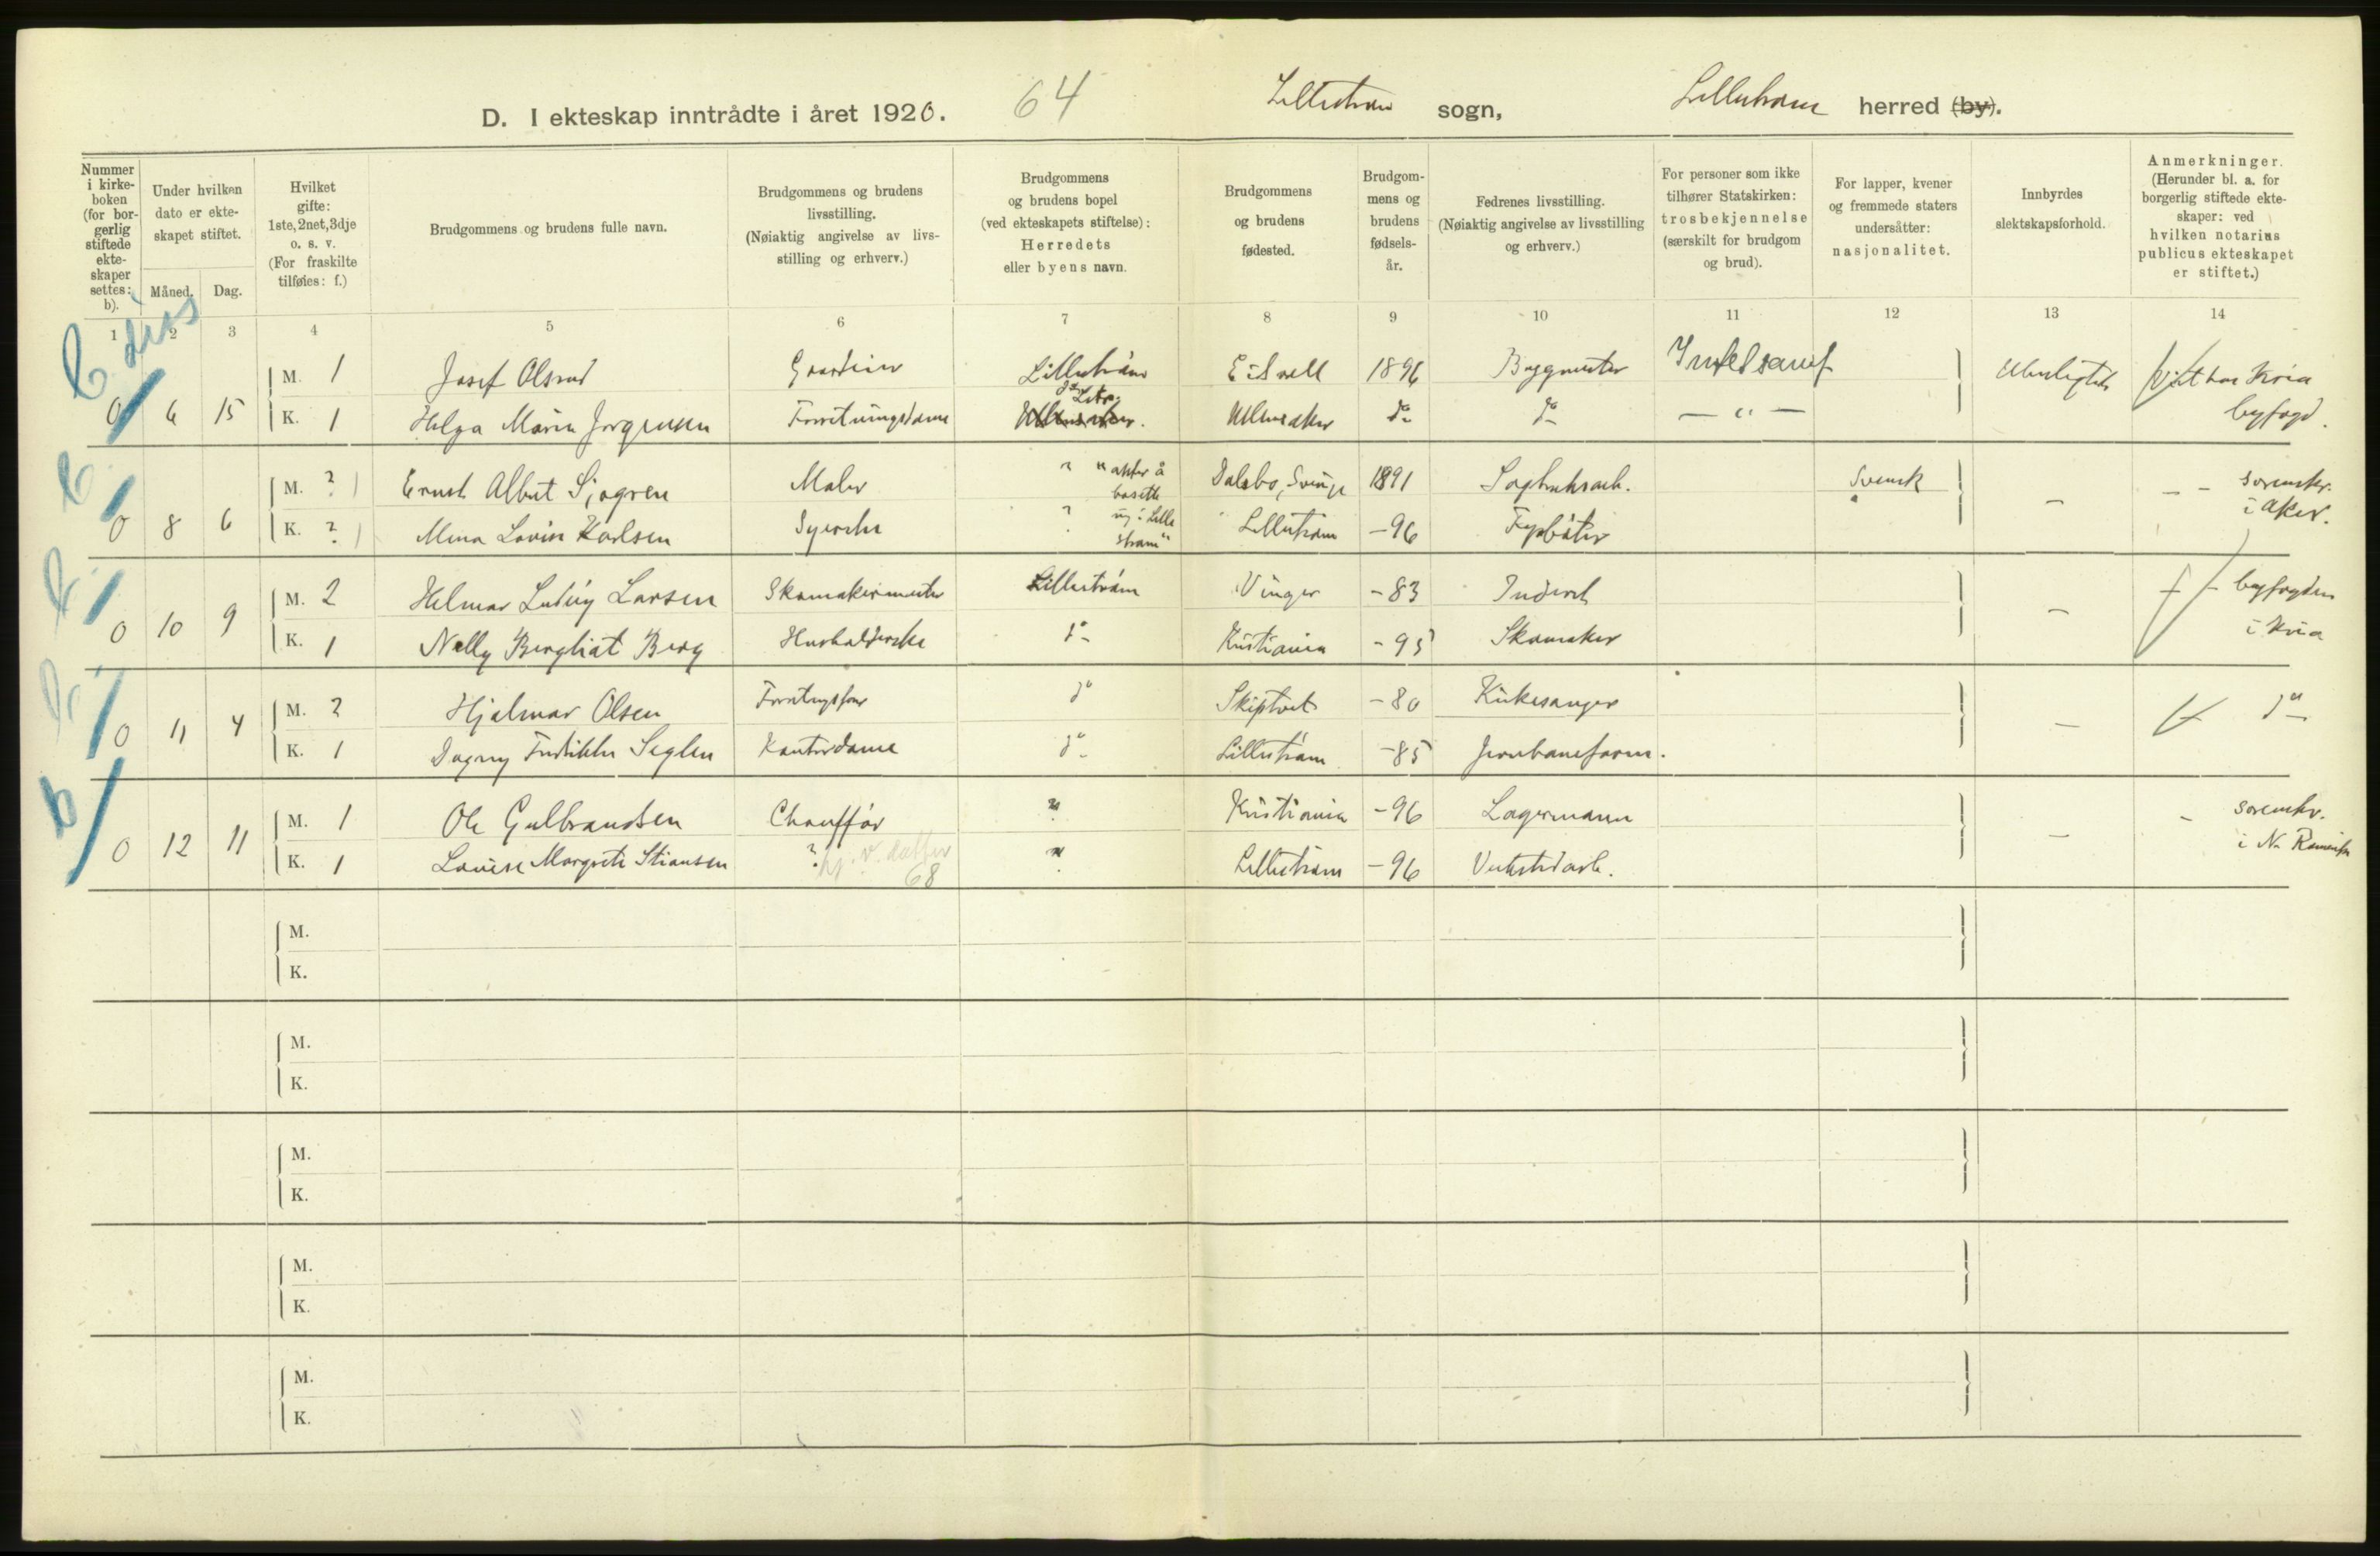 D. I ekteskap inntrådte i året 1920. 64 Lillestrøm sogn, Lillestrøm herred (by).
Nummer i kirke-boken (for bor-gerlig stiftede ekte-skaper settes: b).
Under hvilken dato er ekte-skapet stiftet.
Måned. Dag.
Hvilket gifte: 1ste, 2net, 3dje o. s. v. (For fraskilte tilføies: f.)
Brudgommens og brudens fulle navn.
Brudgommens og brudens livsstilling. (Nøiaktig angivelse av livs-stilling og erhverv.)
Brudgommens og brudens bopel (ved ekteskapets stiftelse): Herredets eller byens navn.
Brudgommens og brudens fødested.
Brudgom-mens og brudens fødsels-år.
Fedrenes livsstilling. (Nøiaktig angivelse av livsstilling og erhverv.)
For personer som ikke tilhører Statskirken: trosbekjennelse (særskilt for brudgom og brud).
For lapper, kvener og fremmede staters undersåtter: nasjonalitet.
Innbyrdes slektskapsforhold.
Anmerkninger. (Herunder bl. a. for borgerlig stiftede ekte-skaper: ved hvilken notarius publicus ekteskapet er stiftet.)
1 2 3 4 5 6 7 8 9 10 11 12 13 14
M. 1 Josef Olsrud Lillestrøm Eidsvoll 1896 Byggmester
0 6 15 K. 1 Helga Marie Jørgensen Forretningsdame Ullensaker do do — " — byfogd.
M. ? Ernst Albert Sjøgren Maler ? " akter å bosette sig i Lillestrøm" Dalsbo, Sverige 1891 Sagbruksarb. Svensk — — sorenskr. i Aker.
0 8 6 K. ? Mina Lovise Karlsen Syerske ? Lillestrøm -96 —
M. 2 Helmar Ludvig Larsen Skomakermester Lillestrøm Vinger -83 — byfogden
0 10 9 K. 1 Nelly Bergliot Berg Husholderske do Kristiania -95 Skomaker i Kria
M. 2 Hjalmar Olsen do Skiptvet -80 Kirkesanger — do
0 11 4 K. 1 Dagny Fredrikke Seglen Kontordame do Lillestrøm -85 Jernbaneform.
M. 1 Ole Gulbrandsen Chauffør " Kristiania -96 Lagermann — — sorenskr.
0 12 11 K. 1 Lovise Margrete Stiansen ? hj. v. datter 68 " Lillestrøm -96 Verkstedarb. i N. Romerike
M.
K.
M.
K.
M.
K.
M.
K.
M.
K.